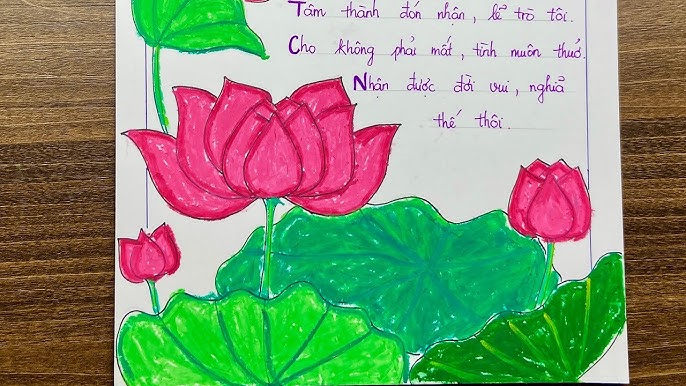 Tâm thành đón nhận, lẽ trò tôi.
Cho không phải mất, tình muôn thuở.
Nhận được đời vui, nghĩa
thế thôi.